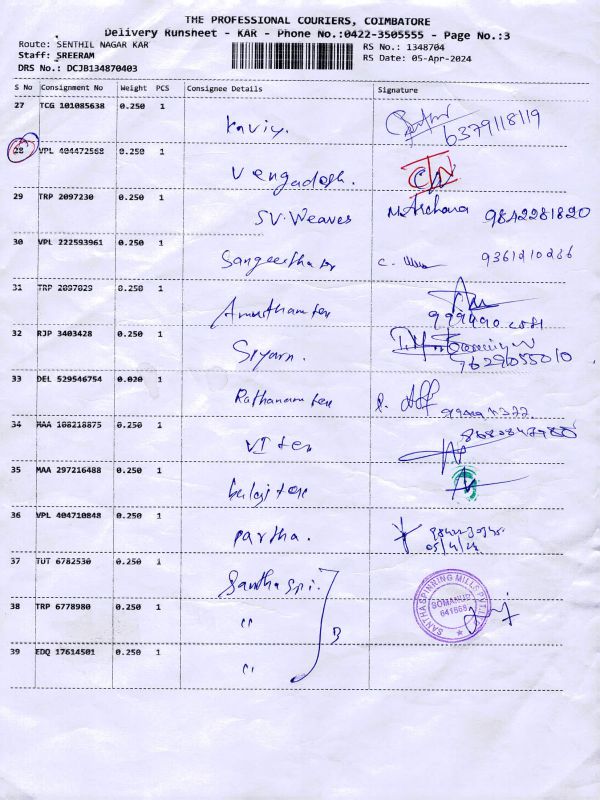 THE PROFESSIONAL COURIERS, COIMBATORE
Delivery Runsheet - KAR - Phone No.:0422-3505555 - Page No.:3
Route: SENTHIL NAGAR KAR RS No.: 1348704
Staff: SREERAM RS Date: 05-Apr-2024
DRS No.: DCJB134870403
S No Consignment No Weight PCS Consignee Details Signature
27 TCG 101085638 0.250 1
Kaviy. 6379118119
28 VPL 404472568 0.250 1
Vengadesh. CN
29 TRP 2097230 0.250 1
S.V. Weaves M. Archana 9842281820
30 VPL 222593961 0.250 1
Sangeetha tex C. 9361210236
31 TRP 2097029 0.250 1
Amutham tex
32 RJP 3403428 0.250 1
7629055010
33 DEL 529546754 0.020 1
Rathanam tex
34 MAA 108218875 0.250 1
VI tex
35 MAA 297216488 0.250 1
balaji tex
36 VPL 404710848 0.250 1
Partha.
05/4/24
37 TUT 6782530 0.250 1
Santha Spi.
SANTHA SPINRING MILLS PVT.LTD
SOMANUR
641668
38 TRP 6778980 0.250 1
" 3
39 EDQ 17614501 0.250 1
"